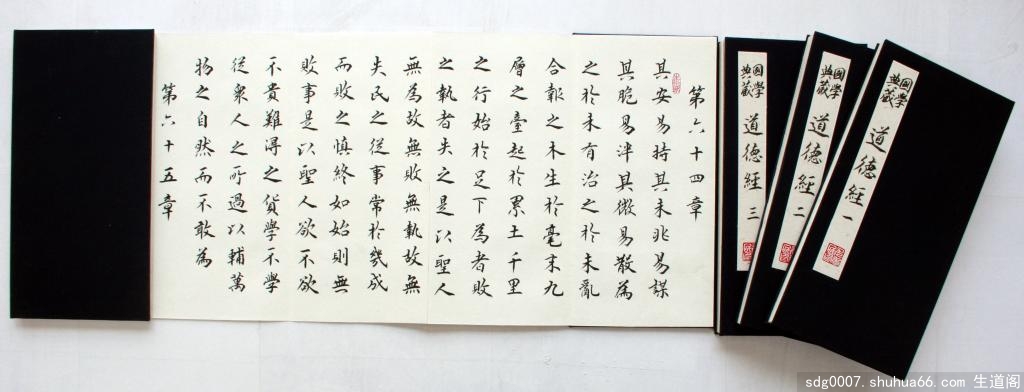 第六十四章
其安易持其未兆易謀
其脆易泮其微易散為
之於未有治之於未亂
合報之木生於毫末九
層之臺起於累土千里
之行始於足下為者敗
之執者失之是以聖人
無為故無敗無執故無
失民之從事常於幾成
而敗之慎終如始則無
敗事是以聖人欲不欲
不貴難得之貨學不學
從衆人之所過以輔萬
物之自然而不敢為
第六十五章
國學
典藏
道德經 一
國學
典藏
道德經 二
國學
典藏
道德經 三
sdg0007. shuhua66. com 生道阁